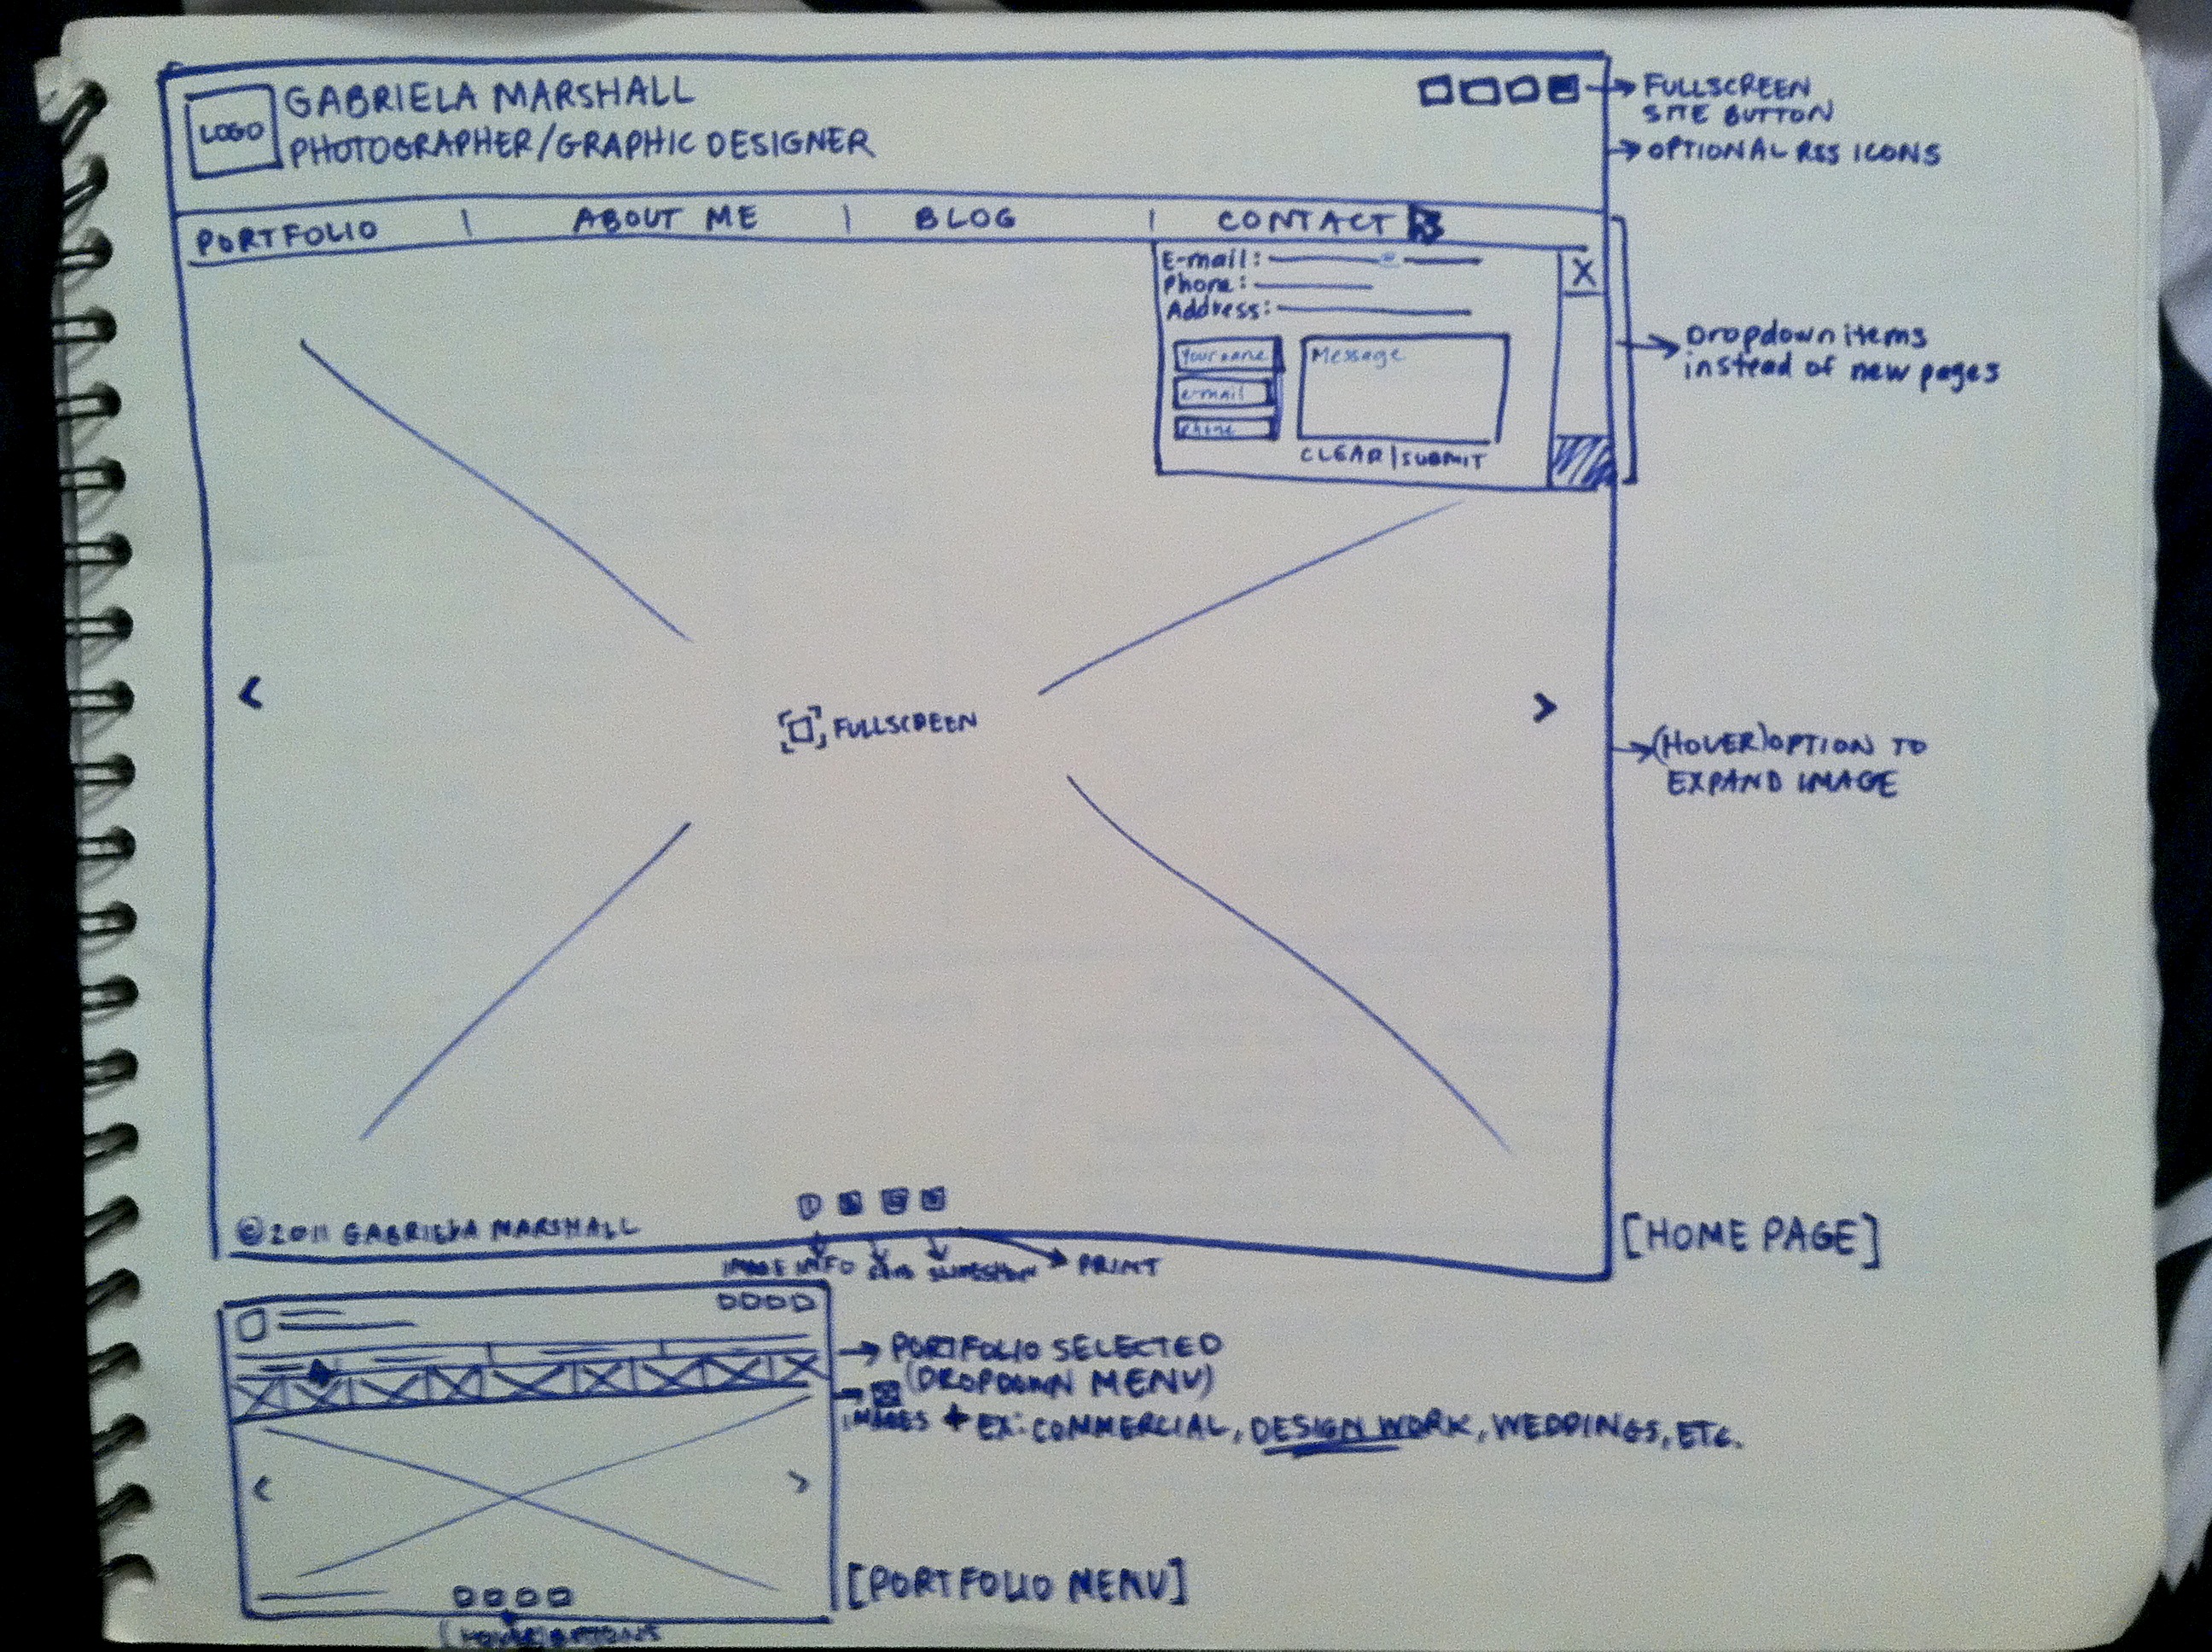 LOGO
GABRIELA MARSHALL
PHOTOGRAPHER/GRAPHIC DESIGNER
→ FULLSCREEN
SITE BUTTON
→ OPTIONAL RSS ICONS
PORTFOLIO | ABOUT ME | BLOG | CONTACT
E-mail: @
Phone:
Address:
X
Your name
e-mail
phone
Message
CLEAR|SUBMIT
→ Dropdown items
instead of new pages
<
FULLSCREEN
>
→ (HOVER) OPTION TO
EXPAND IMAGE
©2011 GABRIELA MARSHALL
[HOME PAGE]
IMAGE INFO
SLIDESHOW
→ PRINT
→ PORTFOLIO SELECTED
(DROPDOWN MENU)
IMAGES → EX: COMMERCIAL, DESIGN WORK, WEDDINGS, ETC.
<
>
[PORTFOLIO MENU]
(HOVER) OPTIONS